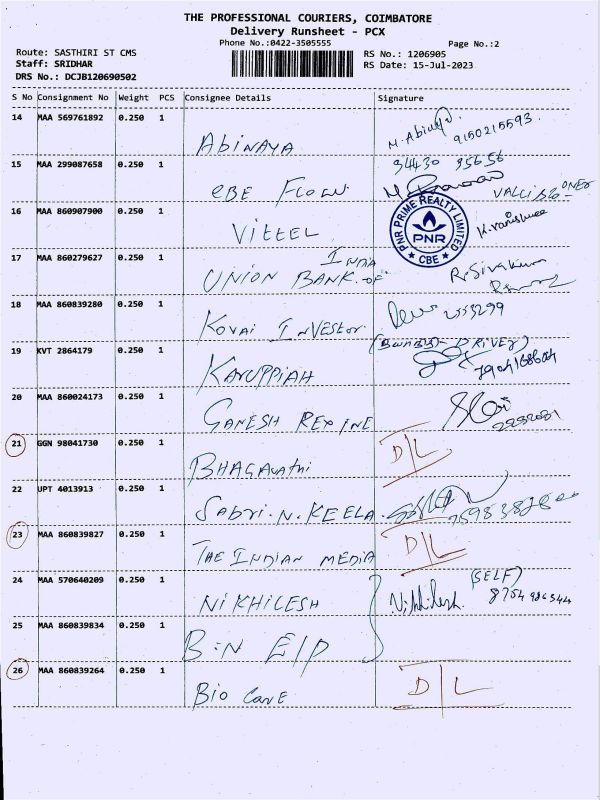 THE PROFESSIONAL COURIERS, COIMBATORE
Delivery Runsheet - PCX
Phone No.:0422-3505555
Page No.:2
Route: SASTHIRI ST CMS
Staff: SRIDHAR
DRS No.: DCJB120690502
RS No.: 1206905
RS Date: 15-Jul-2023
S No Consignment No Weight PCS Consignee Details Signature
14 MAA 569761892 0.250 1 ABINAYA M. Abinaya 9150215593
15 MAA 299087658 0.250 1 CBE FLOW 94430 95656
16 MAA 860907900 0.250 1 VITTEL
PNR PRIME REALTY LIMITED
PNR
CBE
17 MAA 860279627 0.250 1 UNION BANK OF INDIA R. Sivakumar
18 MAA 860839280 0.250 1 KOVAI INVESTOR
19 KVT 2864179 0.250 1 KARUPPIAH DRIVER)
20 MAA 860024173 0.250 1 GANESH REXINE
21 GGN 98041730 0.250 1 BHAGAVATHI D/L
22 UPT 4013913 0.250 1 SABRI.N.KEELA
23 MAA 860839827 0.250 1 THE INDIAN MEDIA D/L
24 MAA 570640209 0.250 1 NIKHILESH Nikhilesh (SELF)
25 MAA 860839834 0.250 1
26 MAA 860839264 0.250 1 BIO CARE D/L